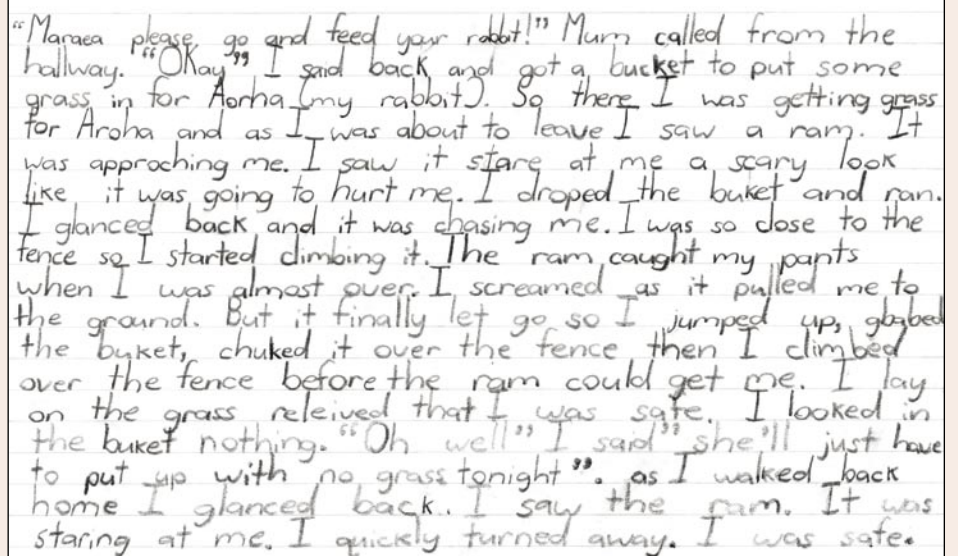 “Maraea please go and feed your rabbit!” Mum called from the
hallway. “Okay” I said back and got a bucket to put some
grass in for Aorha (my rabbit). So there I was getting grass
for Aroha and as I was about to leave I saw a ram. It
was approching me. I saw it stare at me a scary look
like it was going to hurt me. I droped the buket and ran.
I glanced back and it was chasing me. I was so close to the
fence so I started climbing it. The ram caught my pants
when I was almost over. I screamed as it pulled me to
the ground. But it finally let go so I jumped up, gbabed
the buket, chuked it over the fence then I climbed
over the fence before the ram could get me. I lay
on the grass releived that I was safe. I looked in
the buket nothing. “Oh well” I said” she'll just have
to put up with no grass tonight”. as I walked back
home I glanced back. I saw the ram. It was
staring at me. I quickly turned away. I was safe.